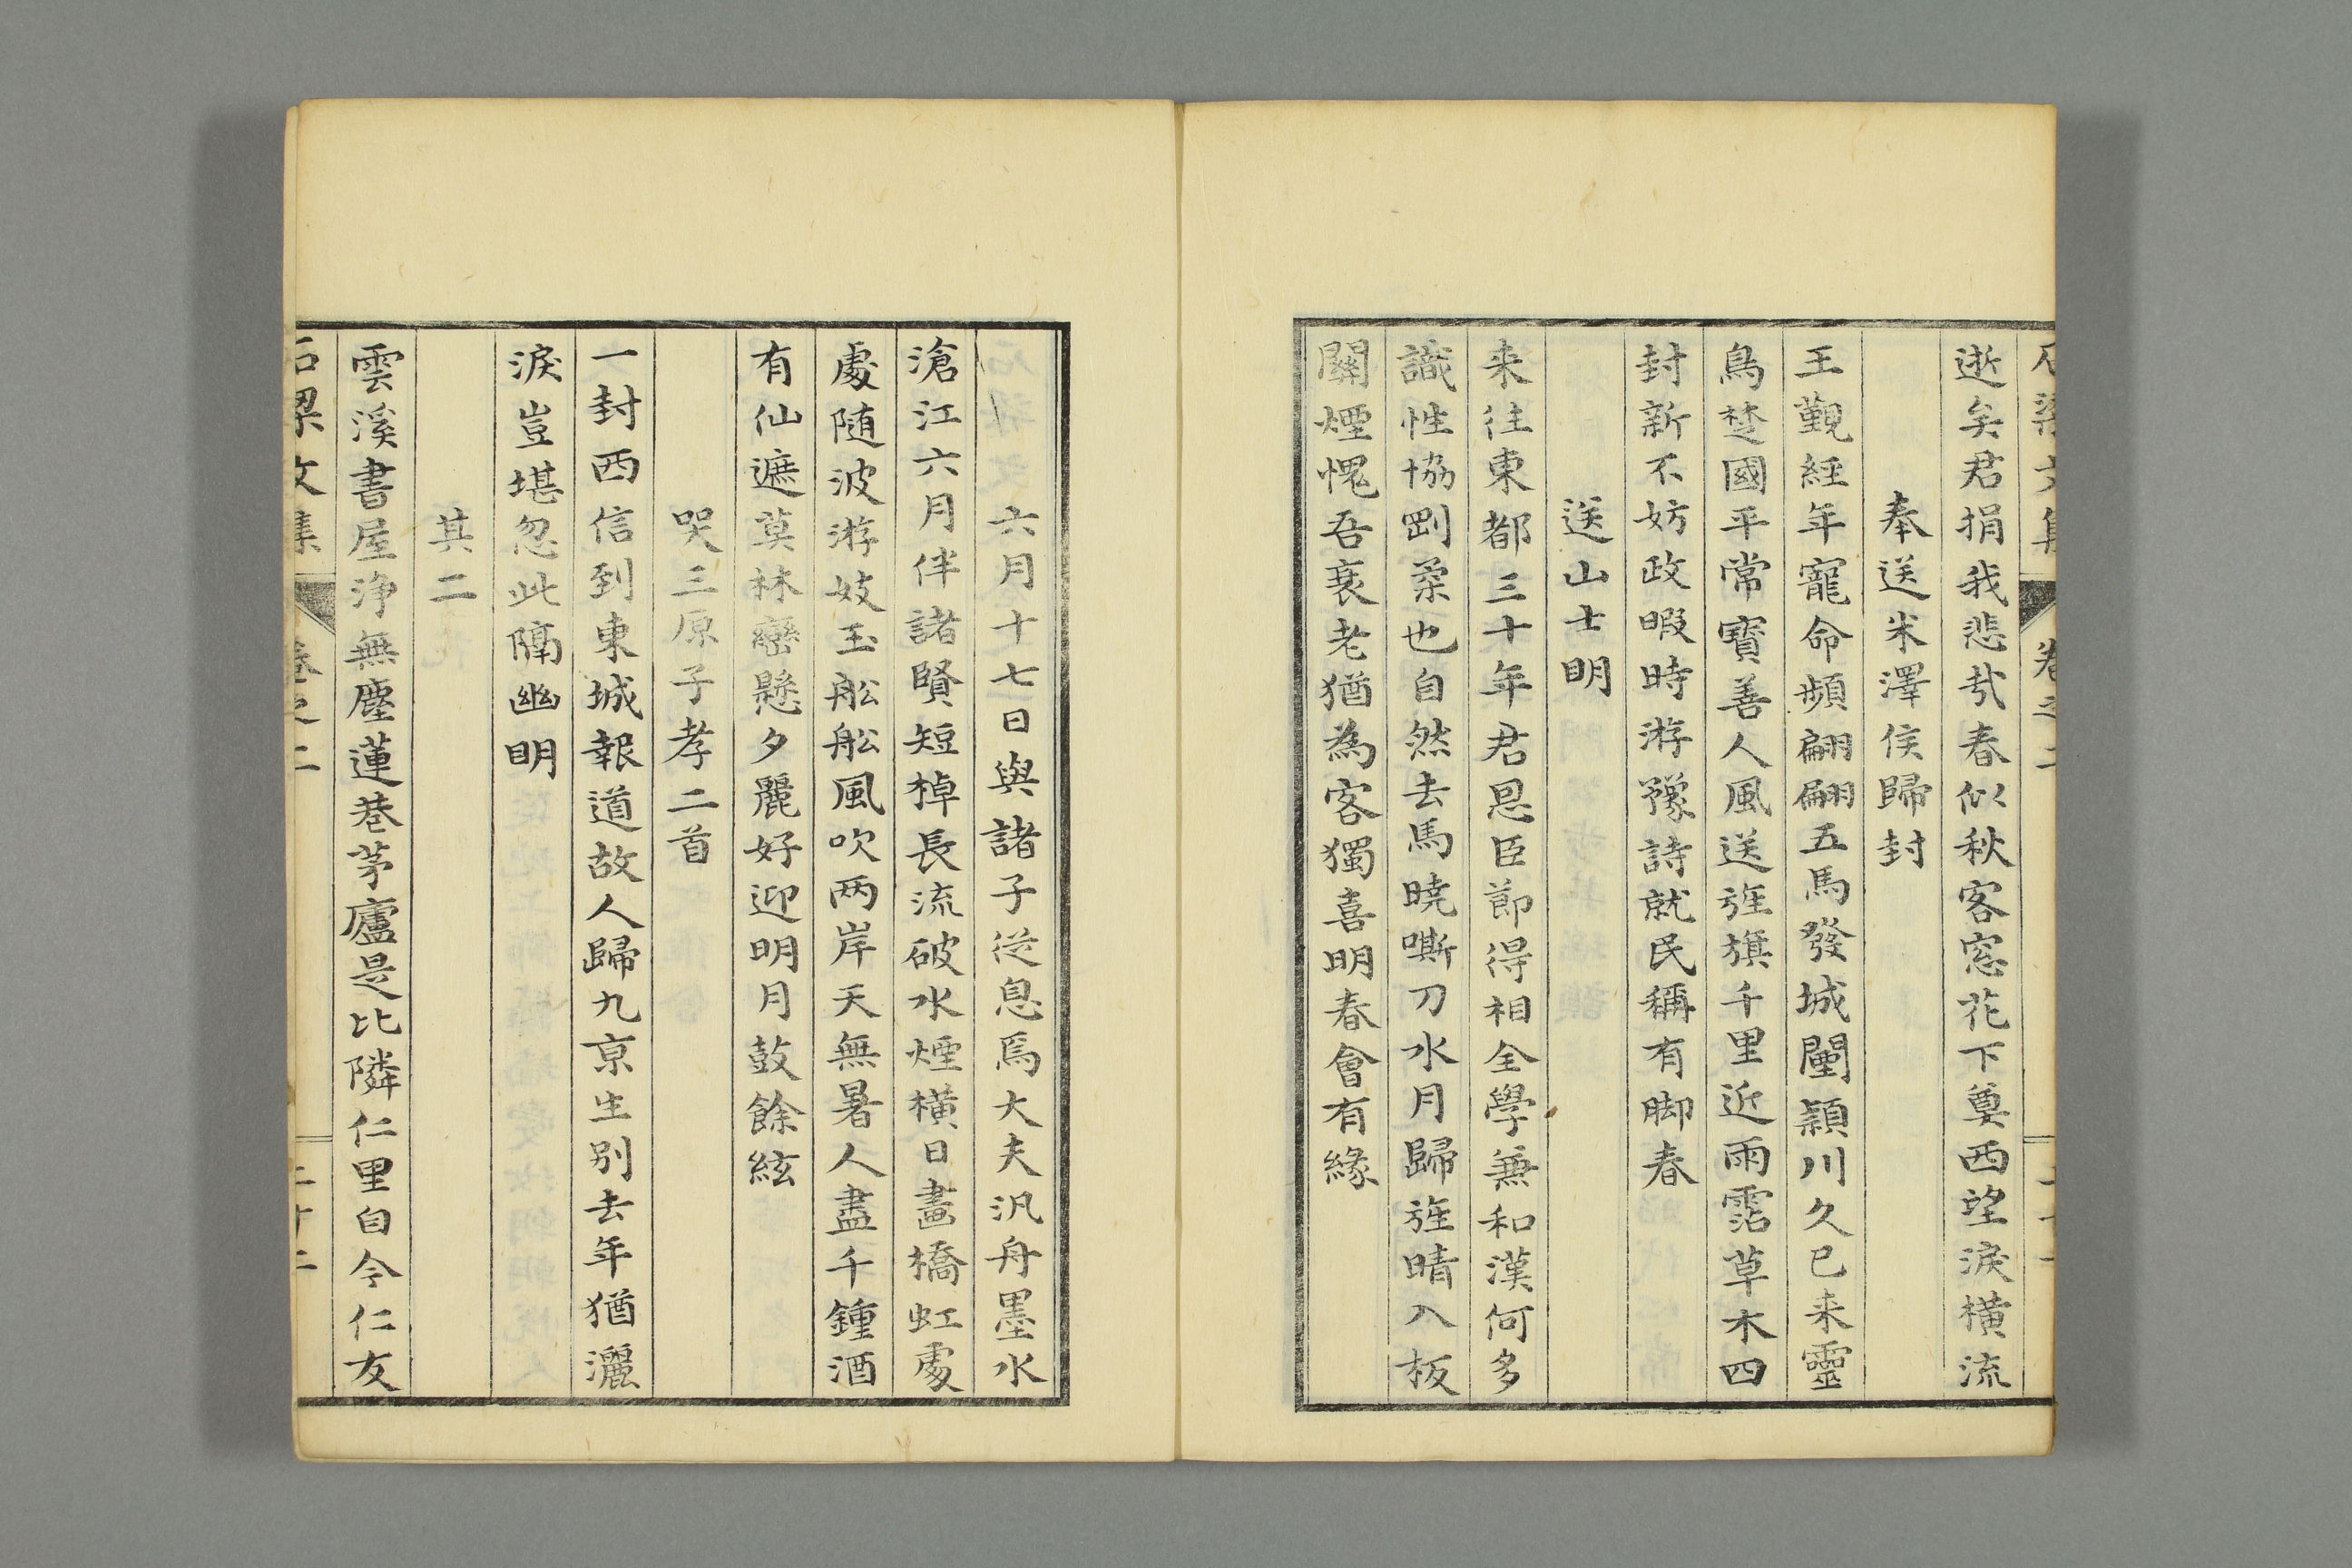 逝矣君捐我悲哉春似秋客窓花下奠西望淚横流
奉送米澤侯歸封
王覲経年寵命頻翩翩五馬發城闉穎川久已来靈
鳥楚國平常寶善人風送旌旗千里近雨霑草木四
封新不妨政暇時游豫詩就民稱有脚春
送山士明
来往東都三十年君恩臣節得相全學兼和漢何多
識性協剛柔也自然去馬曉嘶刀水月歸旌晴入板
關煙愧吾衰老猶為客獨喜明春會有緣
六月十七日與諸子從息焉大夫汎舟墨水
滄江六月伴諸賢短棹長流破水煙横日畫橋虹處
處随波游妓玉舩舩風吹两岸天無暑人盡千鍾酒
有仙遮莫林巒懸夕麗好迎明月鼓餘絃
哭三原子孝二首
一封西信到東城報道故人歸九京生別去年猶灑
淚豈堪忽此隔幽明
其二
雲溪書屋浄無塵蓮巷茅廬是比隣仁里自今仁友
石梁文集
卷之二
二十二